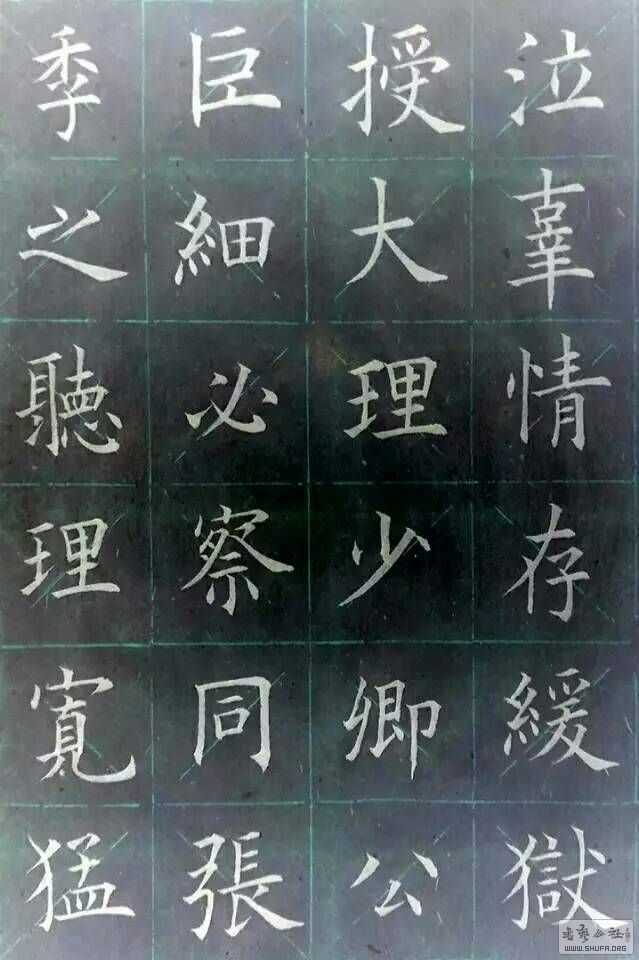 泣辜情存緩獄
授大理少卿公
巨細必察同張
季之聽理寬猛
WWW.SHUFA.ORG